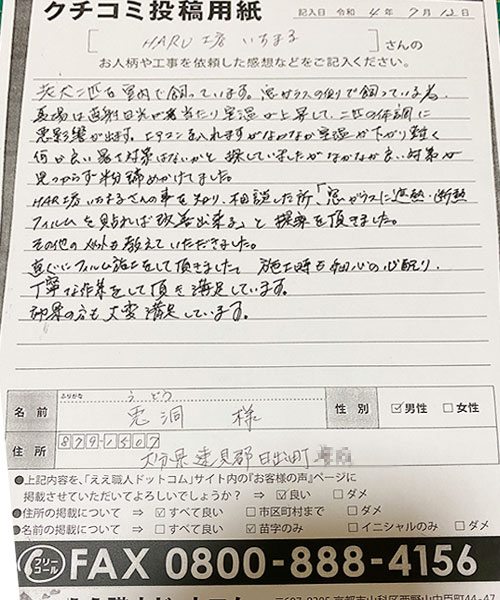 クチコミ投稿用紙
記入日 令和 4年 7月 12日
[ HARU工房 いちまる ] さんの
お人柄や工事を依頼した感想などをご記入ください。
老犬二匹を室内で飼っています。窓ガラスの側で飼っている為、
夏場は直射日光が当たり室温が上昇して、二匹の体調に
悪影響が出ます。エアコンを入れますがなかなか室温が下がり難く
何か良い暑さ対策はないかと探していましたがなかなか良い対策が
見つからず半分諦めかけてました。
HARU工房 いちまるさんの事を知り、相談した所、「窓ガラスに遮熱・断熱
フィルムを貼れば改善出来る」と提案を頂きました。
その他の も教えていただきました。
直ぐにフィルム施工をして頂きました。施工時も細心の心配り、
丁寧な作業をして頂き満足しています。
効果の方も大変満足しています。
ふりがな うどう
名前 洞 様 性別 ☑男性 □女性
住所 879-1507
大分県速見郡日出町
●上記内容を、「ええ職人ドットコム」サイト内の『お客様の声』ページに
掲載させていただいてよろしいでしょうか? ⇒ ☑良い □ダメ
●住所の掲載について ⇒ ☑すべて良い □市区町村まで □ダメ
●名前の掲載について ⇒ □すべて良い ☑苗字のみ □イニシャルのみ □ダメ
フリーコール FAX 0800-888-4156